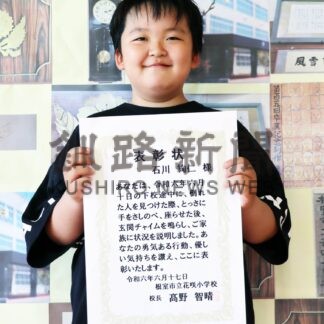 表彰状
石川 様
あなたは、令和六年六月
十日の下校途中に、倒れ
た人を見つけた際、とっさに
手をさしのべ、座らせた後、
玄関チャイムを鳴らし、ご家
族に状況を説明しました。あ
なたの勇気ある行動、優し
い気持ちを讃え、ここに表
彰いたします。
令和六年六月十七日
根室市立花咲小学校
校長 髙野 智晴
釧路新聞
KUSHIRO NEWS WEB
風雪